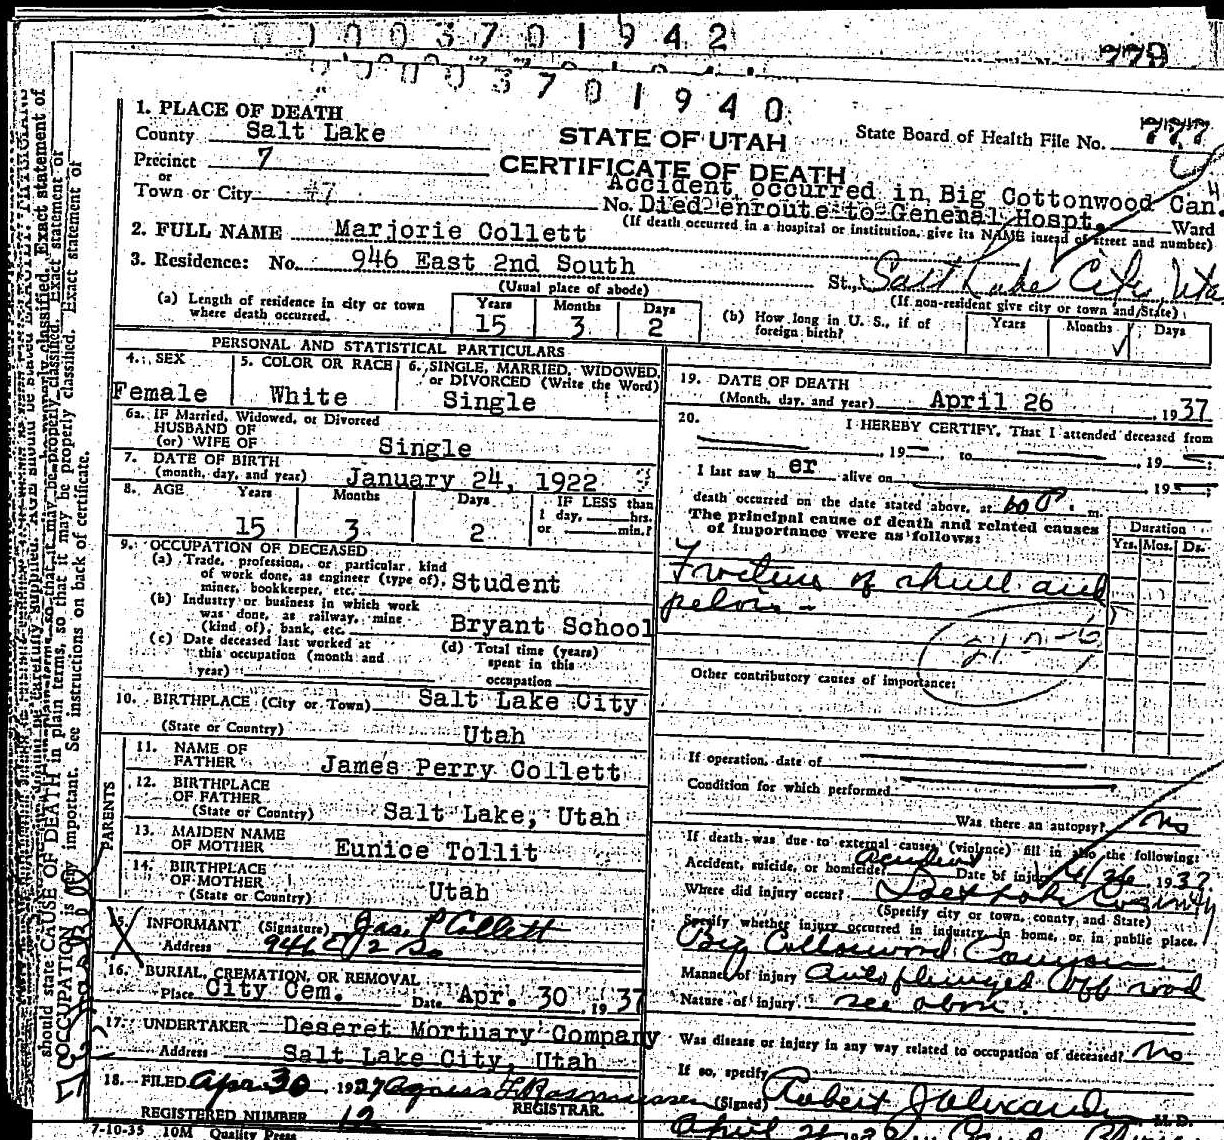 0003701942
779
0003701940
1. PLACE OF DEATH
County Salt Lake
STATE OF UTAH
State Board of Health File No. 777
Precinct 7
CERTIFICATE OF DEATH
or
Town or City #7
Accident occurred in Big Cottonwood Can.
No. Died enroute to General Hospt. Ward
(If death occurred in a hospital or institution, give its NAME instead of street and number)
2. FULL NAME Marjorie Collett
3. Residence: No. 946 East 2nd South St., Salt Lake City, Uta
(Usual place of abode)
(If non-resident give city or town and State)
(a) Length of residence in city or town where death occurred. Years 15 Months 3 Days 2
(b) How long in U. S., if of foreign birth? Years Months Days
PERSONAL AND STATISTICAL PARTICULARS
4. SEX Female
5. COLOR OR RACE White
6. SINGLE, MARRIED, WIDOWED, or DIVORCED (Write the Word) Single
6a. IF Married, Widowed, or Divorced
HUSBAND OF
(or) WIFE OF Single
7. DATE OF BIRTH
(month, day, and year) January 24, 1922
8. AGE Years 15 Months 3 Days 2
IF LESS than
1 day, hrs.
or min.?
9. OCCUPATION OF DECEASED
(a) Trade, profession, or particular kind
of work done, as engineer (type of),
miner, bookkeeper, etc. Student
(b) Industry or business in which work
was done, as railway, mine
(kind of), bank, etc. Bryant School
(c) Date deceased last worked at
this occupation (month and
year)
(d) Total time (years)
spent in this
occupation
10. BIRTHPLACE (City or Town) Salt Lake City
(State or Country) Utah
PARENTS
11. NAME OF
FATHER James Perry Collett
12. BIRTHPLACE
OF FATHER
(State or Country) Salt Lake, Utah
13. MAIDEN NAME
OF MOTHER Eunice Tollit
14. BIRTHPLACE
OF MOTHER
(State or Country) Utah
15. INFORMANT (Signature) Jas. P. Collett
Address 946 E 2 So
16. BURIAL, CREMATION, OR REMOVAL
Place City Cem. Date Apr. 30, 1937
17. UNDERTAKER Deseret Mortuary Company
Address Salt Lake City, Utah
18. FILED Apr 30 1937 Agness F Rasmussen
REGISTRAR.
REGISTERED NUMBER 12
7-10-35 10M Quality Press
19. DATE OF DEATH
(Month, day, and year) April 26, 1937
20. I HEREBY CERTIFY, That I attended deceased from
, 19 , to , 19
I last saw h er alive on , 19
death occurred on the date stated above, at m.
The principal cause of death and related causes
of importance were as follows:
Duration
Yrs. Mos. Ds.
Fracture of skull and
pelvis
Other contributory causes of importance:
If operation, date of
Condition for which performed
Was there an autopsy? No
If death was due to external causes (violence) fill in also the following:
Accident, suicide, or homicide? Accident Date of injury 4/26 1937
Where did injury occur? Salt Lake County
(Specify city or town, county, and State)
Specify whether injury occurred in industry, in home, or in public place.
Big Cottonwood Canyon
Manner of injury Auto plunged off road
Nature of injury See above.
Was disease or injury in any way related to occupation of deceased? No
If so, specify
(Signed) Robert J Alexander M.D.
should state CAUSE OF DEATH in plain terms, so that it may be properly classified. Exact statement of
OCCUPATION is very important. See instructions on back of certificate.